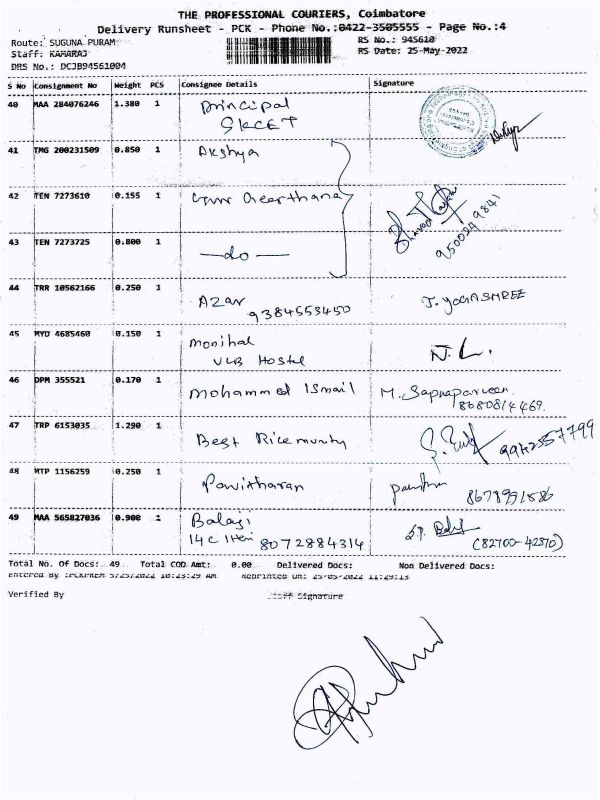 THE PROFESSIONAL COURIERS, Coimbatore
Delivery Runsheet - PCK - Phone No.:0422-3505555 - Page No.:4
Route: SUGUNA PURAM
RS No.: 945610
Staff: KAMARAJ
RS Date: 25-May-2022
DRS No.: DCJB94561004
S No Consignment No Weight PCS Consignee Details Signature
40 MAA 284076246 1.380 1 Principal
SKCET
41 TMG 200231509 0.850 1 Akshya
42 TEN 7273610 0.155 1 Cheerthana
9500249841
43 TEN 7273725 0.800 1 —do—
44 TRR 10562166 0.250 1 Azar J. YOGASHREE
9384553450
45 MYD 4685460 0.150 1 Monihal N.L.
VLB Hostel
46 DPM 355521 0.170 1 Mohammed Ismail M. Sapnaparveen
8680814469.
47 TRP 6153035 1.290 1 Best Ricemunty 9942357799
48 MTP 1156259 0.250 1 Pavitharan
49 MAA 565827036 0.900 1 Balaji
14 C 8072884314 (82700-42370)
Total No. Of Docs: 49 Total COD Amt: 0.00 Delivered Docs: Non Delivered Docs:
Entered By :PCKPREM 5/25/2022 10:23:29 AM Reprinted On: 25-05-2022 11:29:13
Verified By Staff Signature